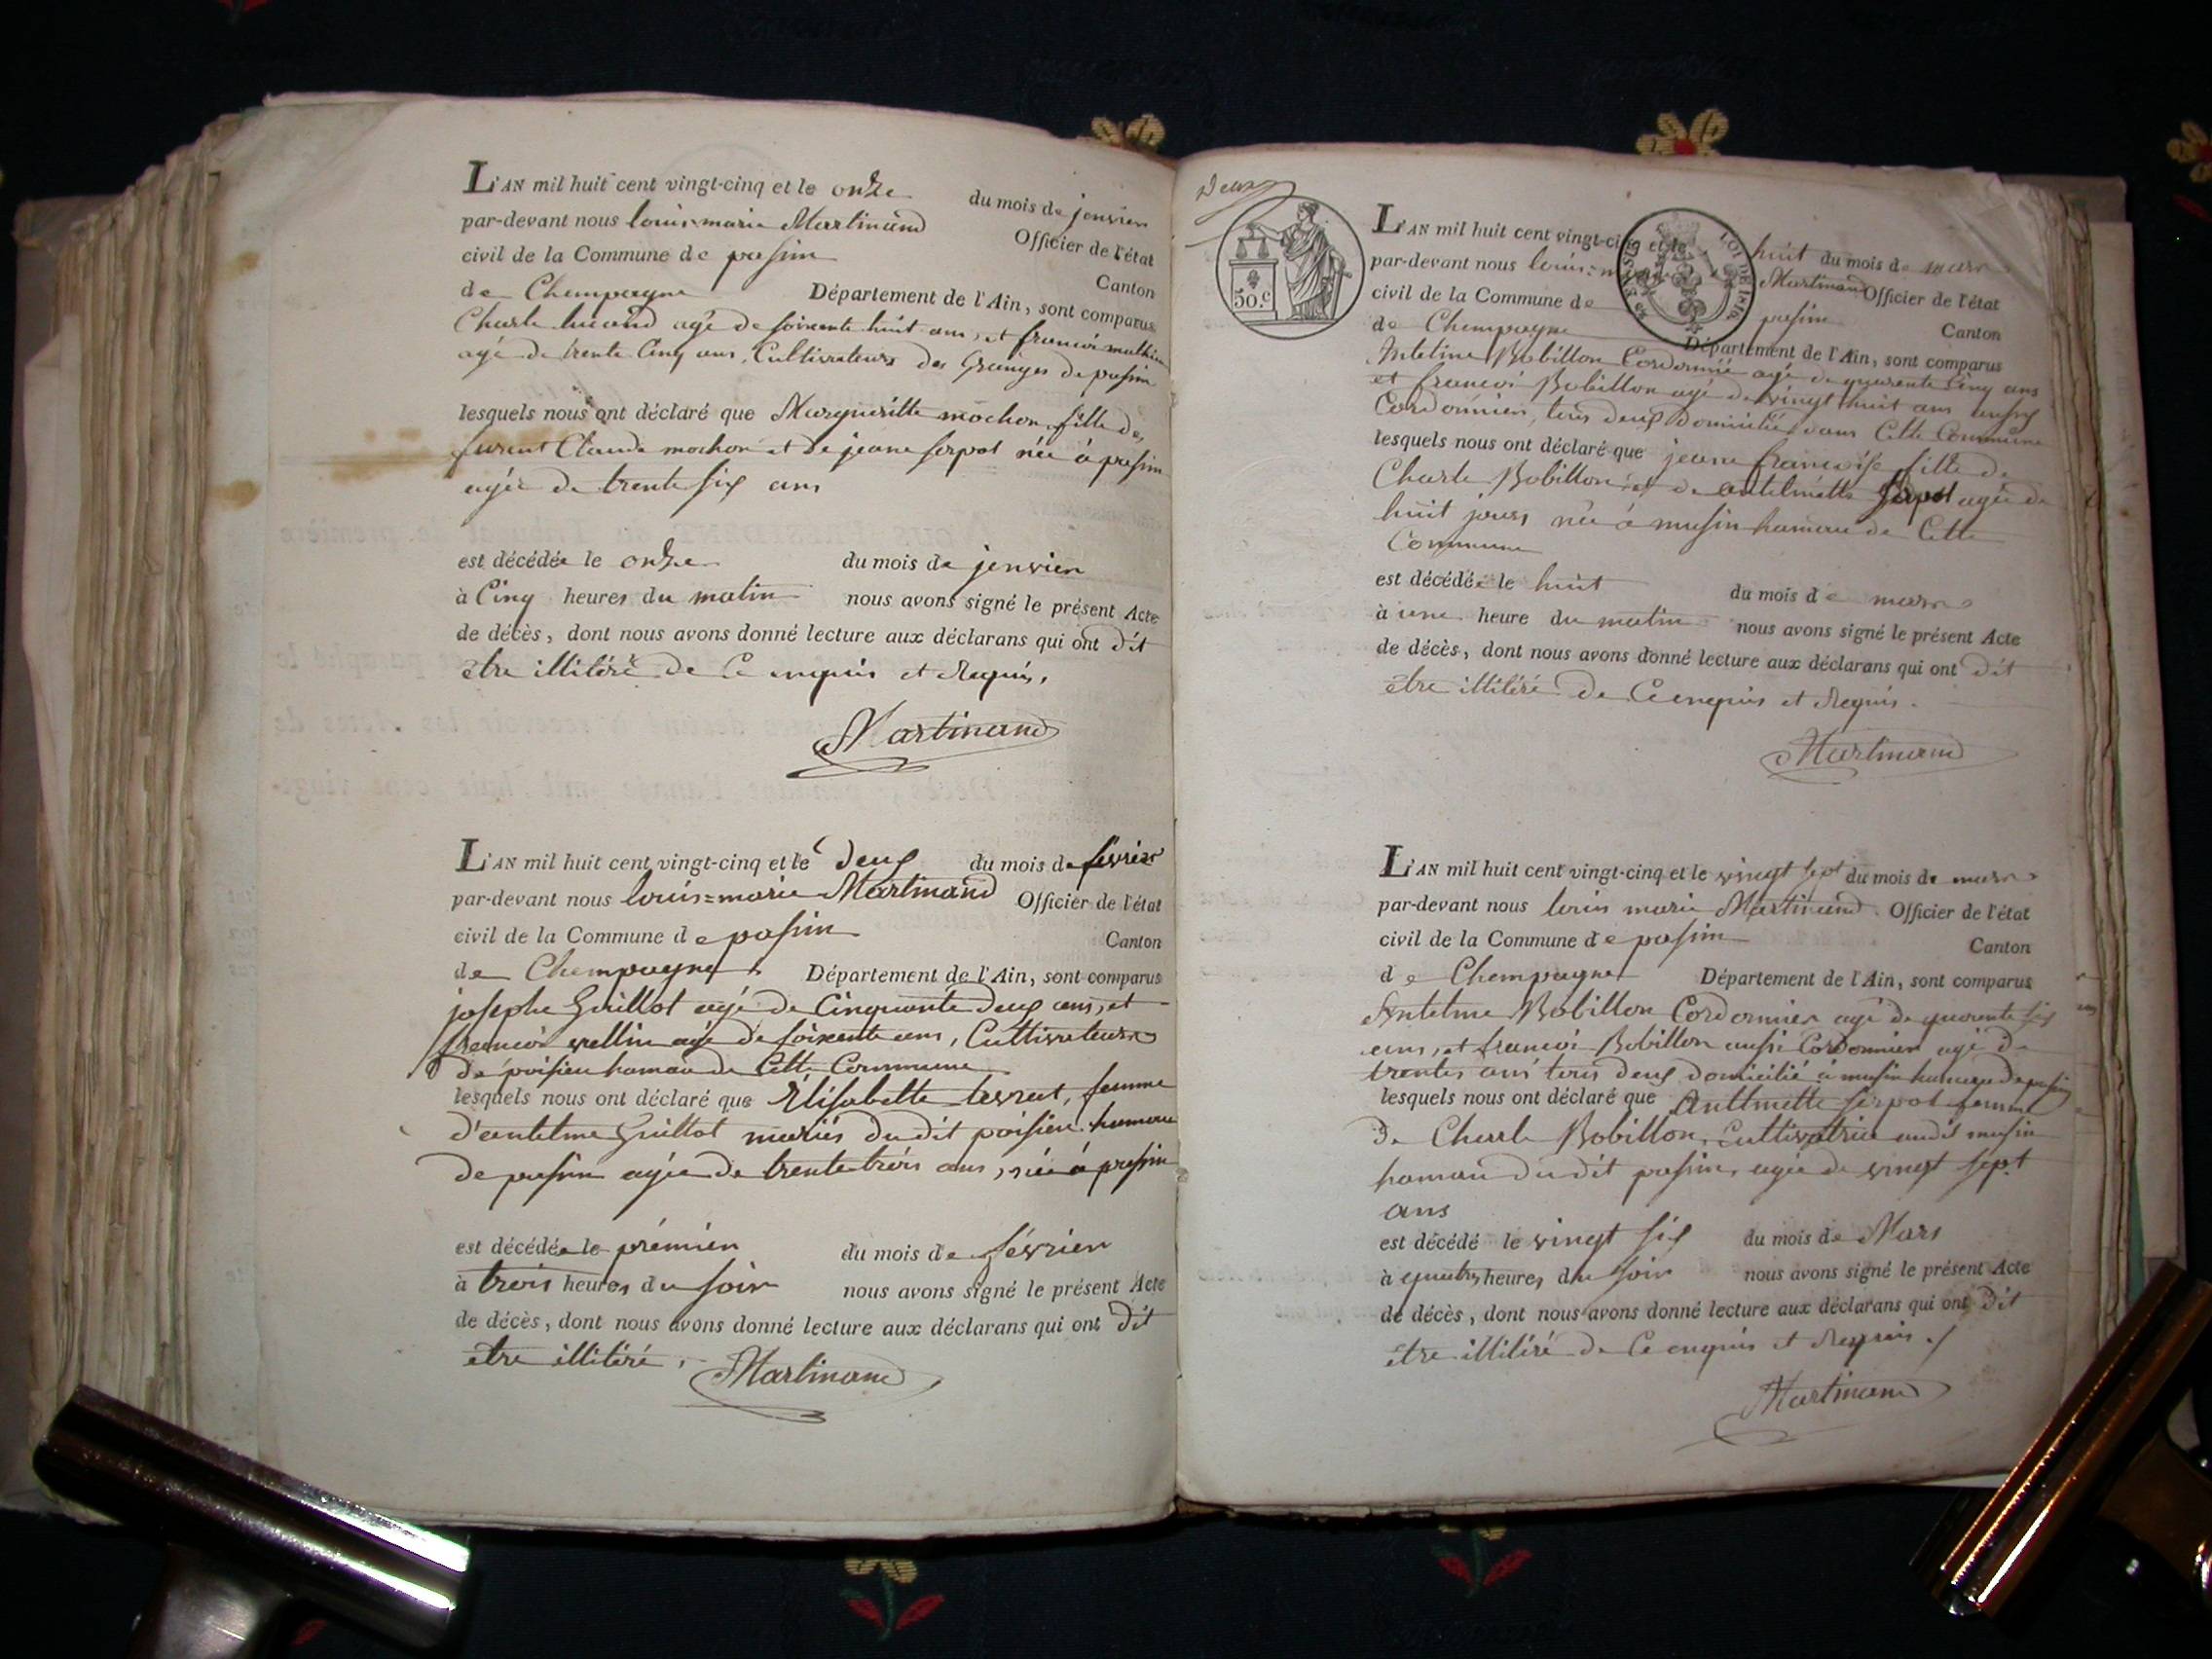 L'AN mil huit cent vingt-cinq et le onze du mois de jenvier
par-devant nous louis-marie Martinand Officier de l'état
civil de la Commune de pasin Canton
de Chempagne Département de l'Ain, sont comparus
Charle agé de soixente huit ans, et francoi mathieu
agé de trente Cinq ans, Cultivateurs des Granges de pasin
lesquels nous ont déclaré que Margueritte mochon fille de
furent Claude mochon et de jeane serpol née à pasin
agée de trente six ans
est décédée le onze du mois de jenvier
à Cinq heures du matin nous avons signé le présent Acte
de décès, dont nous avons donné lecture aux déclarans qui ont dit
etre illitéré de Ce enquis et Requis.
Martinand
L'AN mil huit cent vingt-cinq et le deux du mois de fevrier
par-devant nous louis=marie Martinand Officier de l'état
civil de la Commune de pasin Canton
de Chempagne Département de l'Ain, sont comparus
josephe Guillot agé de Cinquante deux ans, et
francoi vellin agé de soixente ans, Cultivateurs
de poisieu hamau de Cette Commune
lesquels nous ont déclaré que Elisabette levrat, femme
d'antelme Guillot mariés du dit poisieu hamau
de pasin agée de trente trois ans, née à pasin
est décédée le prémier du mois de février
à trois heures du soir nous avons signé le présent Acte
de décès, dont nous avons donné lecture aux déclarans qui ont dit
etre illitéré.
Martinand
Deux
50.c
LOI DE 1816
L'AN mil huit cent vingt-cinq et le huit du mois de mars
par-devant nous louis=marie Martinand Officier de l'état
civil de la Commune de pasin Canton
de Chempagne Département de l'Ain, sont comparus
Antelme Bobillon Cordonnié agé de quarente Cinq ans
et francoi Bobillon agé de vingt huit ans aussy
Cordonnier, tous deux domiciliés dans Cette Commune
lesquels nous ont déclaré que jeane francoise fille de
Charle Bobillon et de antelmette serpol agée de
huit jours née à musin hamau de Cette
Commune
est décédée le huit du mois de mars
à une heure du matin nous avons signé le présent Acte
de décès, dont nous avons donné lecture aux déclarans qui ont dit
être illitéré de Ce enquis et Requis.
Martinand
L'AN mil huit cent vingt-cinq et le vingt sept du mois de mars
par-devant nous louis marie Martinand Officier de l'état
civil de la Commune de pasin Canton
de Chempagne Département de l'Ain, sont comparus
Antelme Bobillon Cordonnier agé de quarente six
ans, et francoi Bobillon aussi Cordonnier agé de
trentes ans tous deux domicilié à musin hamau de pasin
lesquels nous ont déclaré que Antelmette serpol femme
de Charle Bobillon, Cultivatrice audit musin
hamau du dit pasin, agée de vingt sept
ans
est décédé le vingt six du mois de Mars
à quatre heures du soir nous avons signé le présent Acte
de décès, dont nous avons donné lecture aux déclarans qui ont dit
etre illitéré de Ce enquis et Requis./
Martinand